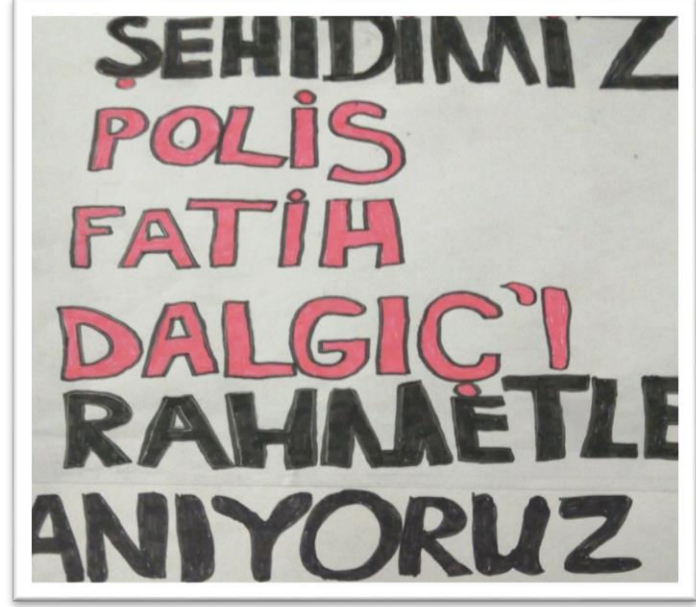 ŞEHİDİMİZ
POLİS
FATİH
DALGIÇ'I
RAHMETLE
ANIYORUZ